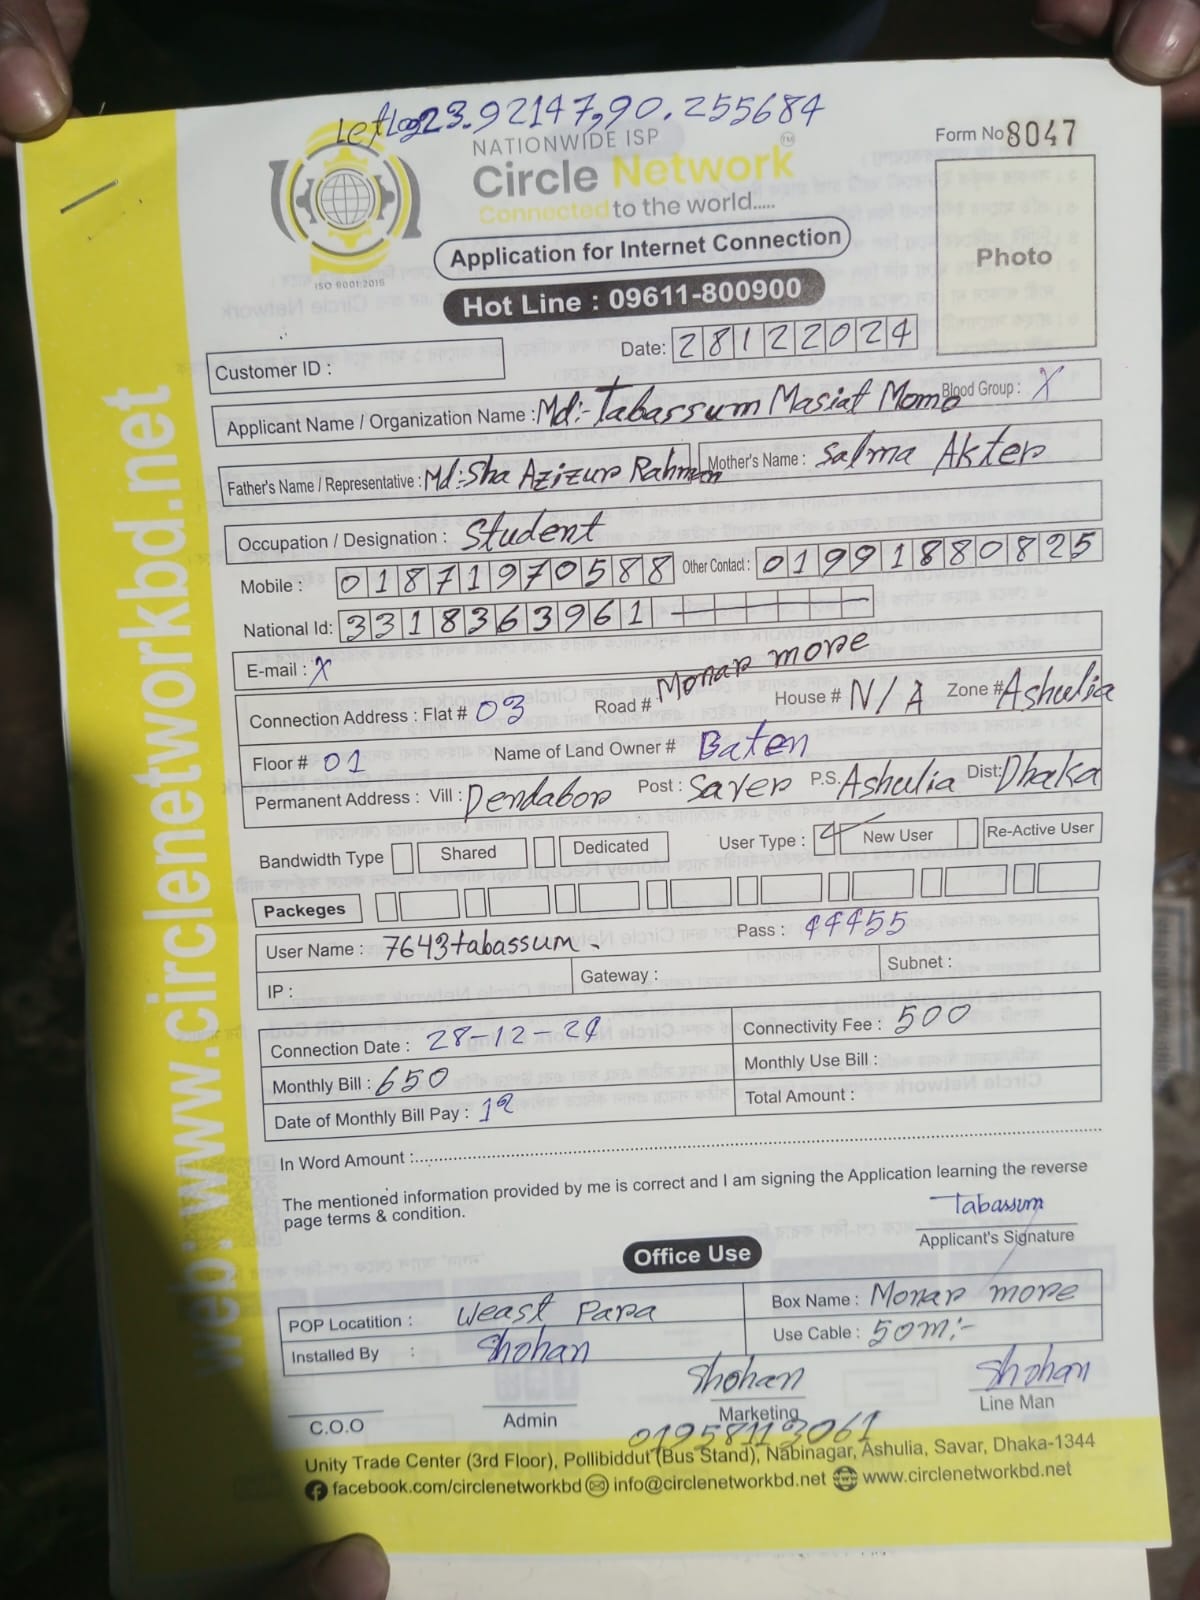 Let Log 23.92147,90.255684
NATIONWIDE ISP
Circle Network TM
Connected to the world.....
ISO 9001:2015
Form No 8047
Photo
Application for Internet Connection
Hot Line : 09611-800900
Date: 28122024
Customer ID :
Applicant Name / Organization Name : Md:- Tabassum Masiat Momo Blood Group : X
Father's Name / Representative : Md:-Sha Azizur Rahman Mother's Name : Salma Akter
Occupation / Designation : Student
Mobile : 01871970588 Other Contact : 01991880825
National Id: 3318363961
E-mail : X
Connection Address : Flat # 03 Road # Monar more House # N/A Zone # Ashulia
Floor # 01 Name of Land Owner # Baten
Permanent Address : Vill : Dendabor Post : Saver P.S. Ashulia Dist: Dhaka
Bandwidth Type Shared Dedicated User Type : New User Re-Active User
Packeges
User Name : 7643tabassum Pass : 44455
IP : Gateway : Subnet :
Connection Date : 28-12-24 Connectivity Fee : 500
Monthly Bill : 650 Monthly Use Bill :
Date of Monthly Bill Pay : 12 Total Amount :
In Word Amount :
The mentioned information provided by me is correct and I am signing the Application learning the reverse
page terms & condition.
Tabassum
Applicant's Signature
Office Use
POP Locatition : Weast Para Box Name : Monar more
Installed By : Shohan Use Cable : 50m:-
Shohan Shohan
C.O.O Admin Marketing Line Man
01958113061
Unity Trade Center (3rd Floor), Pollibiddut (Bus Stand), Nabinagar, Ashulia, Savar, Dhaka-1344
facebook.com/circlenetworkbd info@circlenetworkbd.net www.circlenetworkbd.net
web: www.circlenetworkbd.net